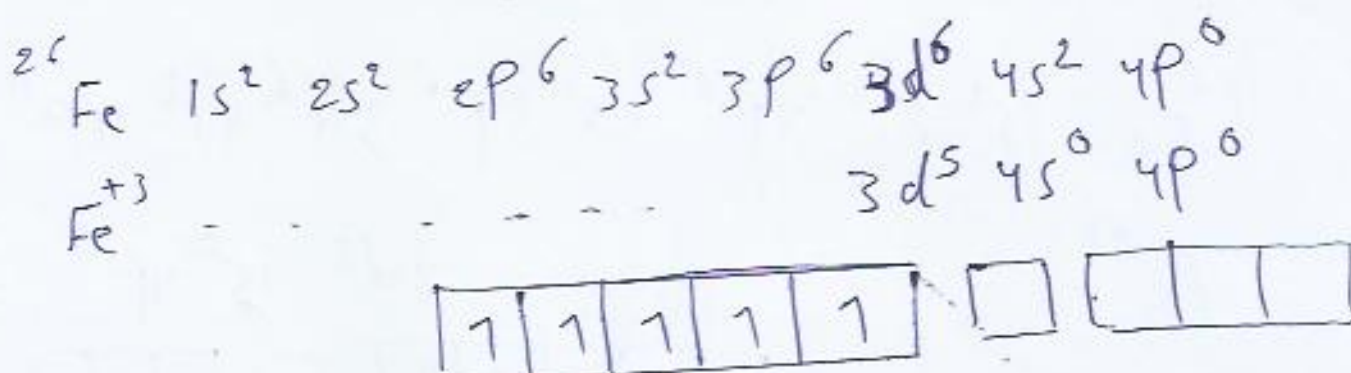 26
Fe 1s² 2s² 2p⁶ 3s² 3p⁶ 3d⁶ 4s² 4p⁰
Fe⁺³ - - - - - - - 3d⁵ 4s⁰ 4p⁰
1 1 1 1 1